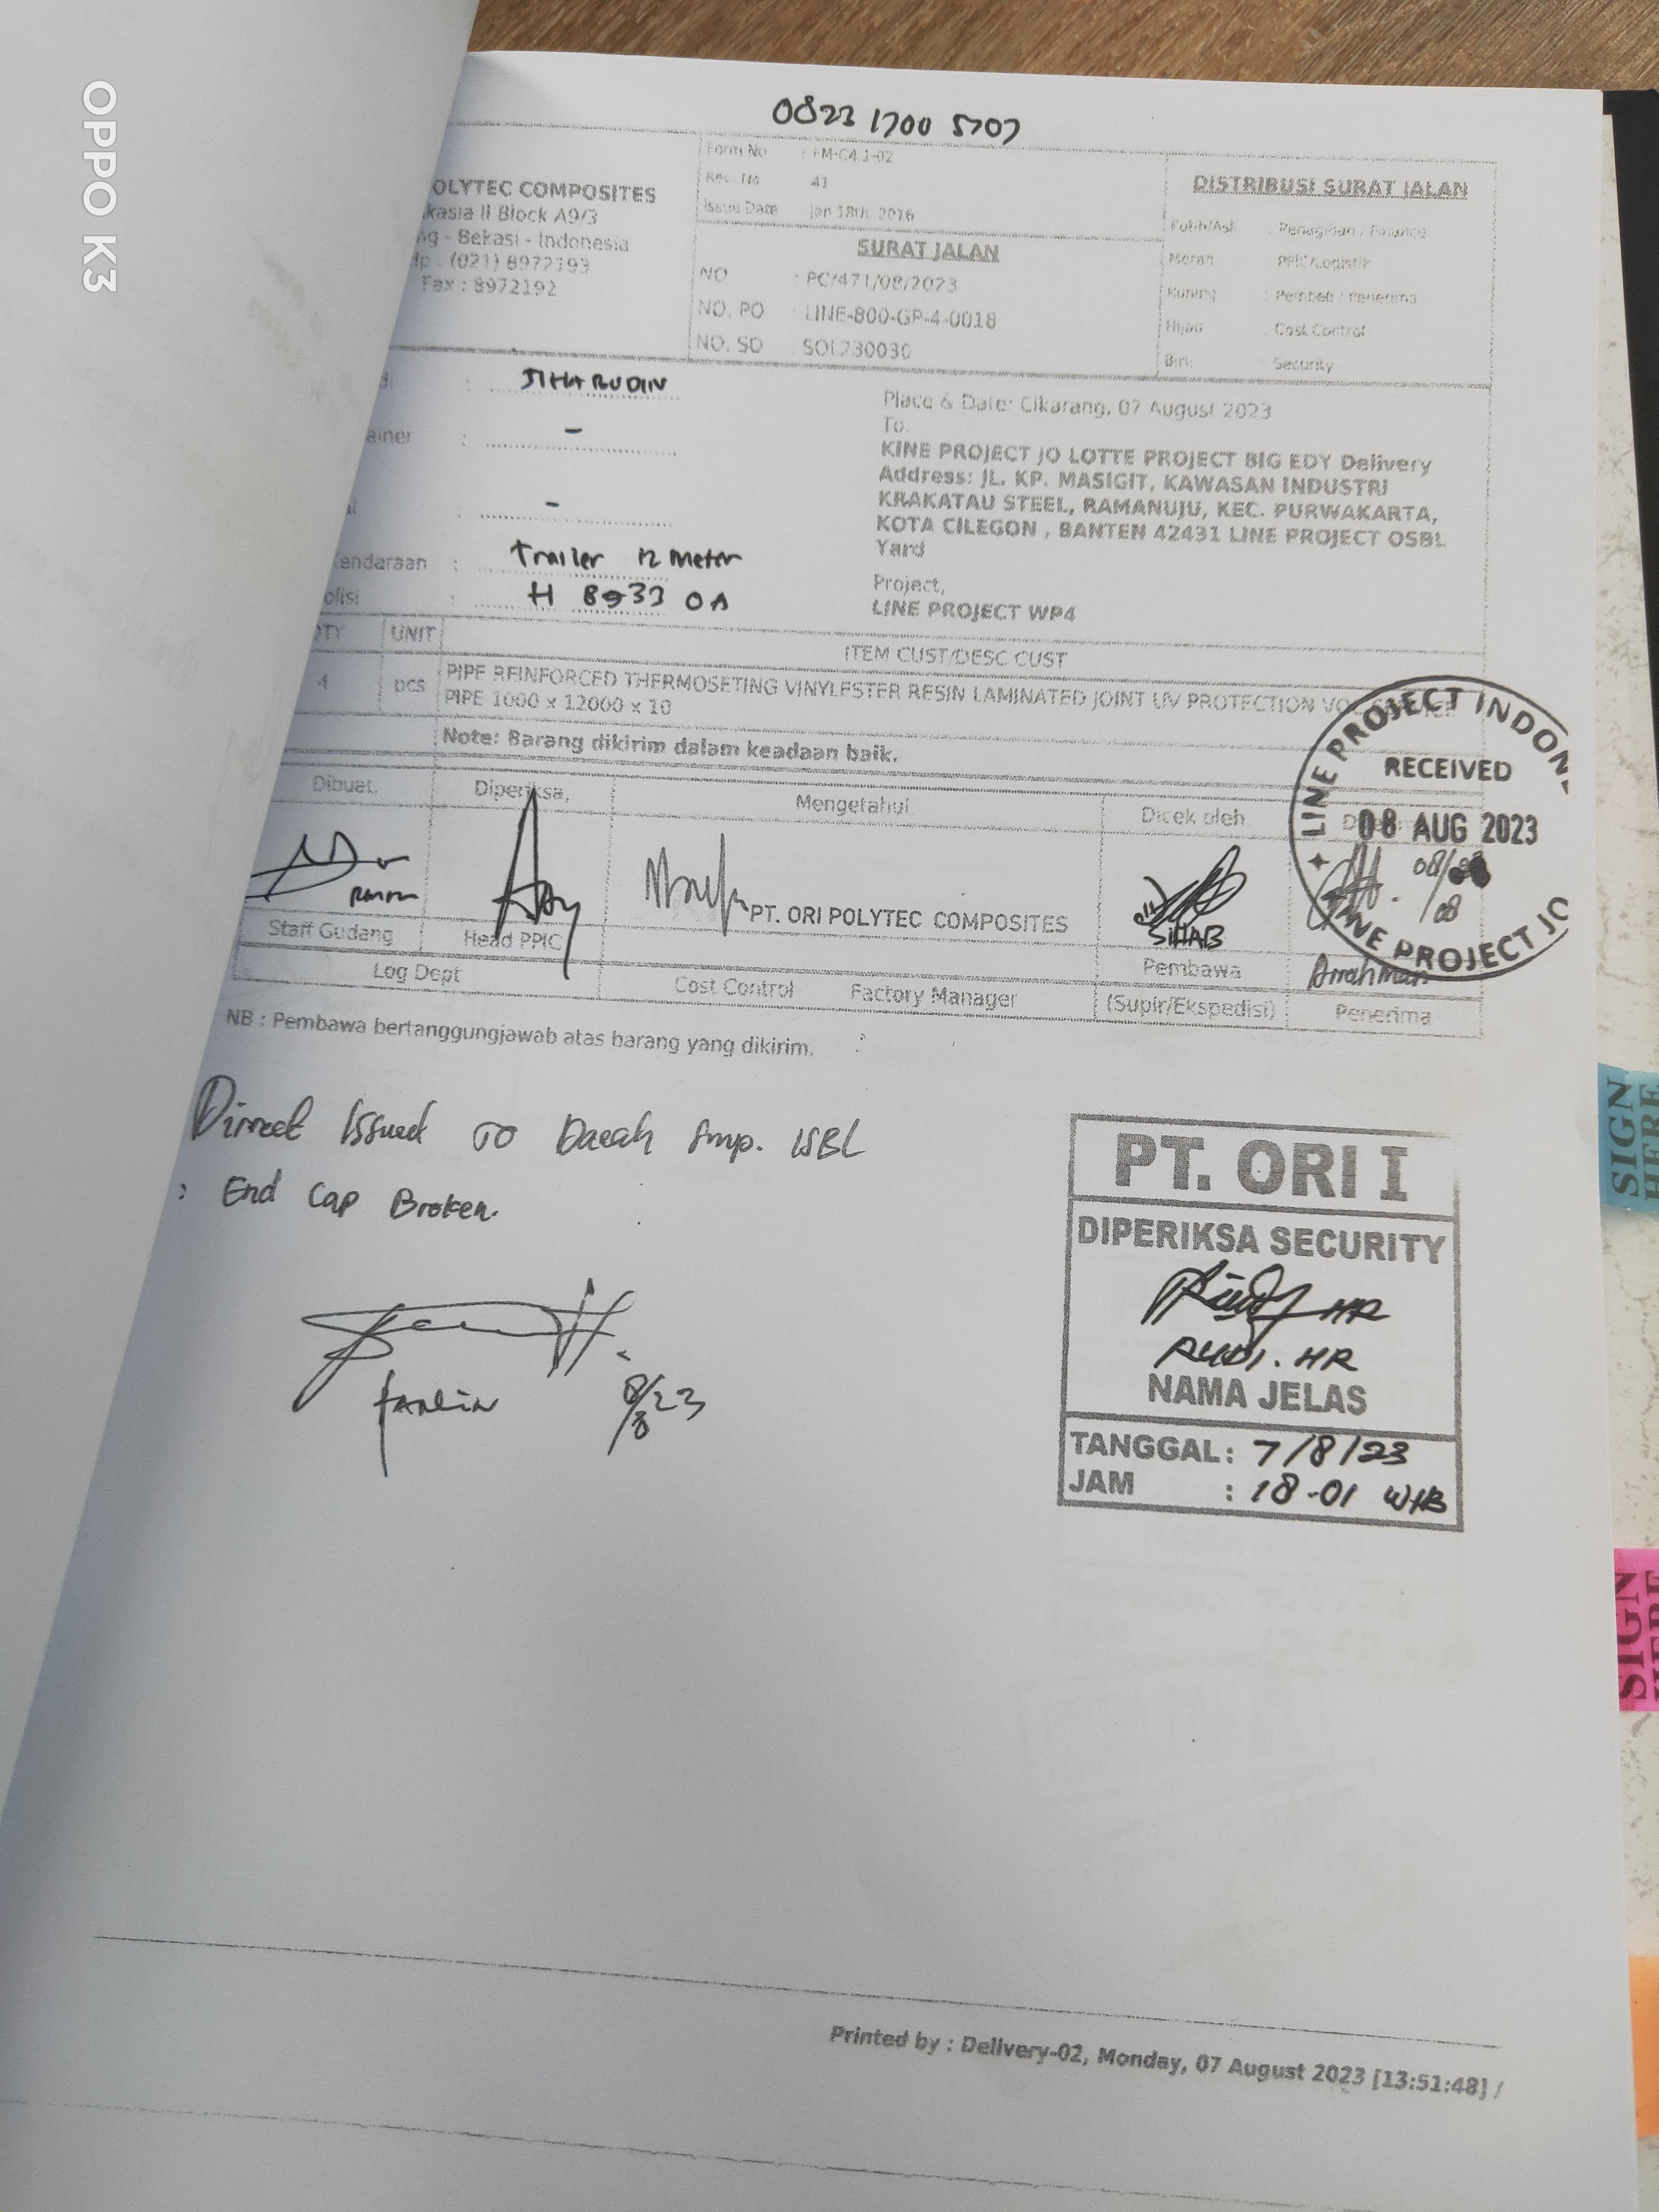 OPPO K3
0823 1700 5707
OLYTEC COMPOSITES
kasia II Block A9/3
ng - Bekasi - Indonesia
lp : (021) 8972193
Fax : 8972192
Form No : FM-C4.1-02
Rev. No 41
Issue Date Jan 18th 2016
SURAT JALAN
NO : PC/471/08/2023
NO. PO : LINE-800-GP-4-0018
NO. SO : SOL230030
DISTRIBUSI SURAT JALAN
Putih/Asli : Penagihan / Finance
Merah PPIC/Logistik
Kuning : Pembeli / Penerima
Hijau : Cost Control
Biru Security
: JIHARUDIN
ainer : -
: -
Kendaraan : Trailer 12 Meter
olisi : H 8933 OA
Place & Date: Cikarang, 07 August 2023
To.
KINE PROJECT JO LOTTE PROJECT BIG EDY Delivery
Address: JL. KP. MASIGIT, KAWASAN INDUSTRI
KRAKATAU STEEL, RAMANUJU, KEC. PURWAKARTA,
KOTA CILEGON , BANTEN 42431 LINE PROJECT OSBL
Yard
Project,
LINE PROJECT WP4
TY UNIT ITEM CUST/DESC CUST
4 pcs PIPE REINFORCED THERMOSETING VINYLESTER RESIN LAMINATED JOINT UV PROTECTION
PIPE 1000 x 12000 x 10
Note: Barang dikirim dalam keadaan baik.
LINE PROJECT INDON
RECEIVED
08 AUG 2023
LINE PROJECT JO
Dibuat, Diperiksa, Mengetahui Dicek oleh
PT. ORI POLYTEC COMPOSITES
SIHAB
08/08
Staff Gudang Head PPIC Pembawa Arrahman
Log Dept Cost Control Factory Manager (Supir/Ekspedisi) Penerima
NB : Pembawa bertanggungjawab atas barang yang dikirim.
Direct Issued TO Daeah Smp. ISBL
: End Cap Broken.
8/8 23
PT. ORI I
DIPERIKSA SECURITY
RUDI. HR
NAMA JELAS
TANGGAL : 7/8/23
JAM : 18-01 WIB
SIGN HERE
SIGN
Printed by : Delivery-02, Monday, 07 August 2023 [13:51:48] /